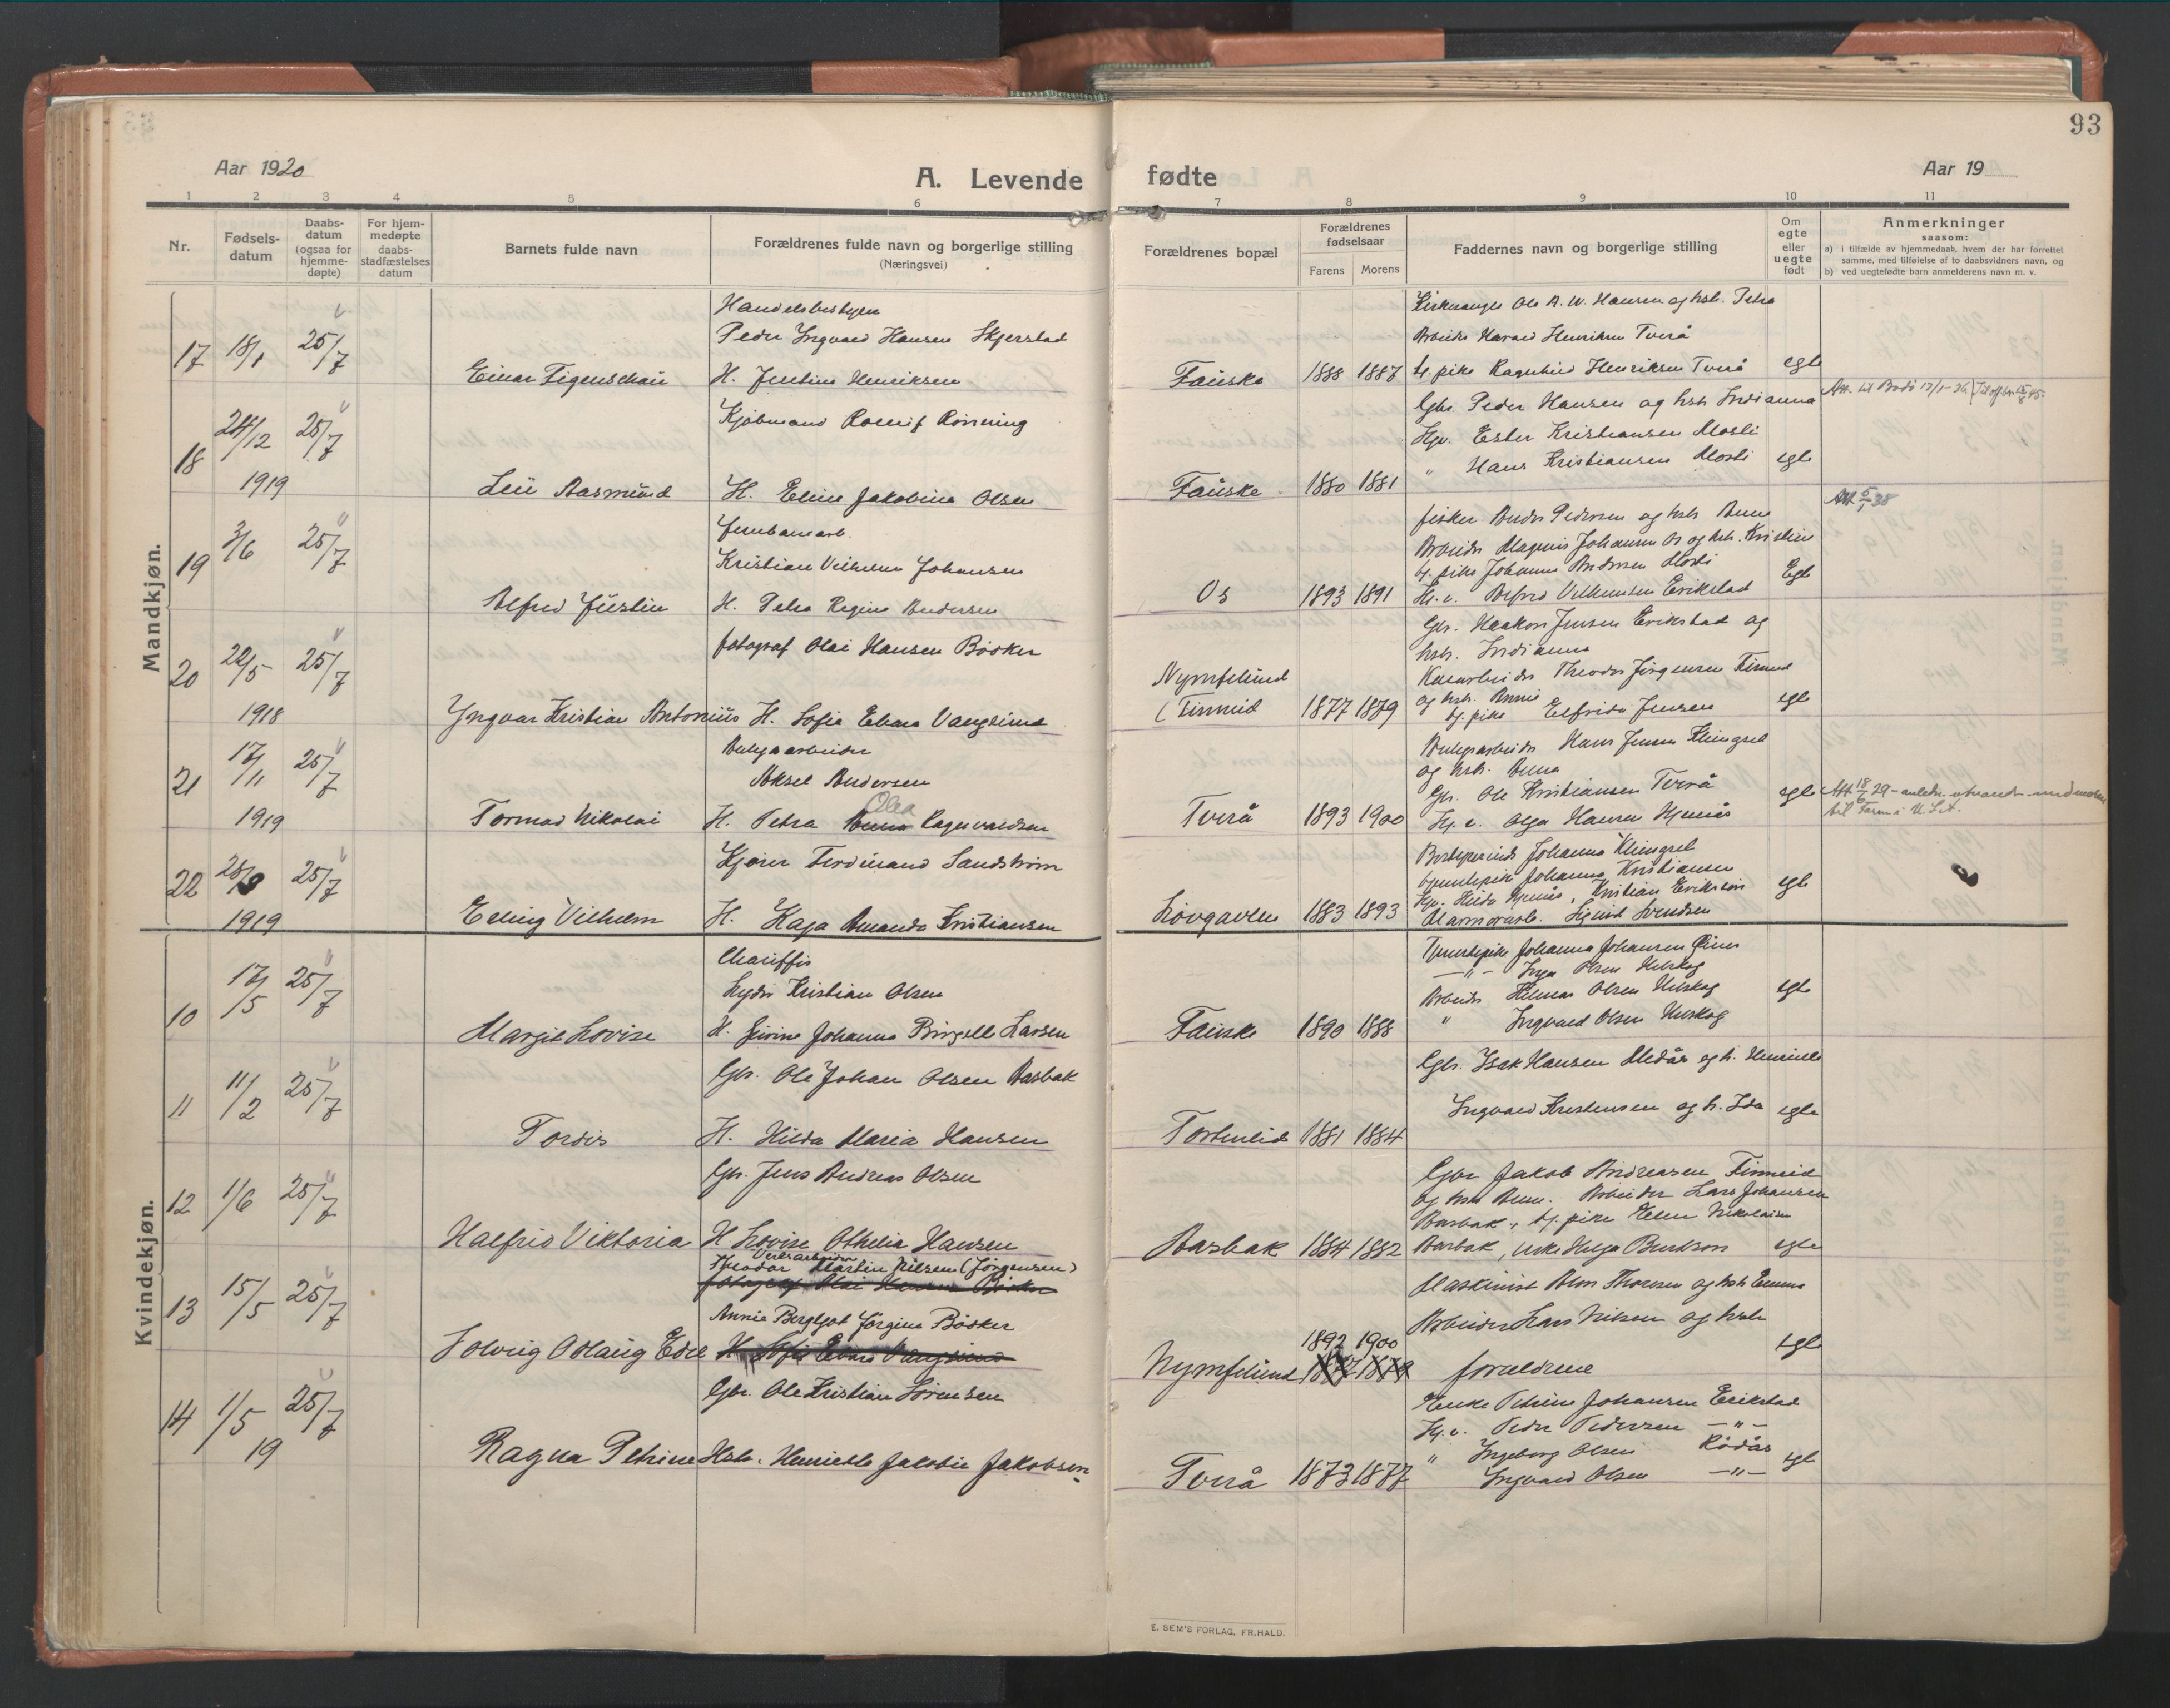 93
Aar 1920
A. Levende fødte
Aar 19
1 2 3 4 5 6 7 8 9 10 11
Nr.
Fødsels-
datum
Daabs-
datum
(ogsaa for
hjemme-
døpte)
For hjem-
medøpte
daabs-
stadfæstelses
datum
Barnets fulde navn
Forældrenes fulde navn og borgerlige stilling
(Næringsvei)
Forældrenes bopæl
Forældrenes
fødselsaar
Farens Morens
Faddernes navn og borgerlige stilling
Om
egte
eller
uegte
født
Anmerkninger
saasom:
a) i tilfælde av hjemmedaab, hvem der har forrettet
samme, med tilføielse af to daabsvidners navn, og
b) ved uegtefødte barn anmelderens navn m. v.
Mandkjøn.
17 18/1 25/7
Einar Figenschau
Handelsbestyrer
Peder Ingvard Hansen Skjerstad
H. Justine Henriksen
Fauske 1888 1887
Ole A. W. Hansen og hst. Petra
Arbeider Harald Henriksen Tverå
tj. pike Ragnhild Henriksen Tverå
egte
18 24/12 25/7
1919
Leif Aasmund
Kjøbmand Rønning
H. Eline Jakobine Olsen
Fauske 1880 1881
Gbr. Peder Hansen og hst. Indianna
Ester Kristiansen Mosti
" Hans Kristiansen Mosti
egte
Att. til Bodø
19 3/6 25/7
Alfred Justin
Jernbanearb.
Kristian Vilhelm Johansen
H. Petra Regine Andersen
Os 1893 1891
fisker Peder Pedersen og hst. Anna
Arbeider Magnus Johansen Os og hst. Kristine
tj. pike Johanna Andersen Mosti
Alfred Vilhelmsen Erikstad
Egte
20 22/5 25/7
1918
Yngvar Kristian Antonius
fotograf Olai Hansen Bødker
H. Sofie Edvarda Vanglund
Nymfelund
(Finneid 1877 1879
Gbr. Haakon Jensen Erikstad og
hst. Indianna
Theodor Jørgensen Finneid
og hst. Annie
tj. pike Elfrida Jensen
egte
21 17/11 25/7
1919
Tormod Nikolai
Anlegsarbeider
Aksel Andersen
Olea
H. Petra Anna Ragnvaldsen
Tverå 1893 1900
Anlegsarbeider Hans Jensen Kleingsel
og hst. Anna
Gbr. Ole Kristiansen Tverå
Olga Hansen
egte
22 28/8 25/7
1919
Erling Vilhelm
Kjører Ferdinand Sandstrøm
H. Kaja Amanda Kristiansen
Løvgavlen 1883 1893
Johanna Kleingsel
tjenestepike Johanna Kristiansen
Hilda Kristian Eriksen
Marmorarb. Sigurd Svendsen
egte
Kvindekjøn.
10 17/5 25/7
Margit Lovise
Lyder Kristian Olsen
H. Johanna Larsen
Fauske 1890 1888
Tjenestepike Johanna Johansen
—"— Inga Olsen
Arbeider Hilmar Olsen
" Ingvald Olsen
egte
11 11/2 25/7
Tordis
Gbr. Ole Johan Olsen Aasbak
H. Hilda Maria Hansen
Tortenlid 1881 1884
Gbr. Isak Hansen og h. Henriette
Ingvald Kristensen og h. Ida
egte
12 1/6 25/7
Halfrid Viktoria
Gbr. Jens Andreas Olsen
H Lovise Othelia Hansen
Aasbak 1884 1882
Gbr Jakob Andreasen Finneid
og hst. Arbeider Lars Johansen
Aasbak, tj. pike Ellen Nikolaisen
Aasbak, enke Helga
egte
13 15/5 25/7
Solveig Oddlaug Edle
Theodor Martin Nilsen (Jørgensen)
fotograf Olai Hansen Bødker
Annie Bergljot Jörgine Bödker
H. Sofie Edvarda Vanglund
Nymfelund 1892 1900
1877 1879
Maskinist Thoresen og hst Emma
Arbeider Lars Nilsen og hst.
foreldrene
egte
14 1/5 25/7
19
Ragna Petrine
Gbr. Ole Kristian Sørensen
Hst. Henriette Jakobine Jakobsen
Tverå 1873 1877
Enke Petrine Johansen Erikstad
Peder Pedersen —"—
" Ingeborg Olsen Rødås
Ingvald Olsen —"—
egte
E. SEM'S FORLAG, FR.HALD.